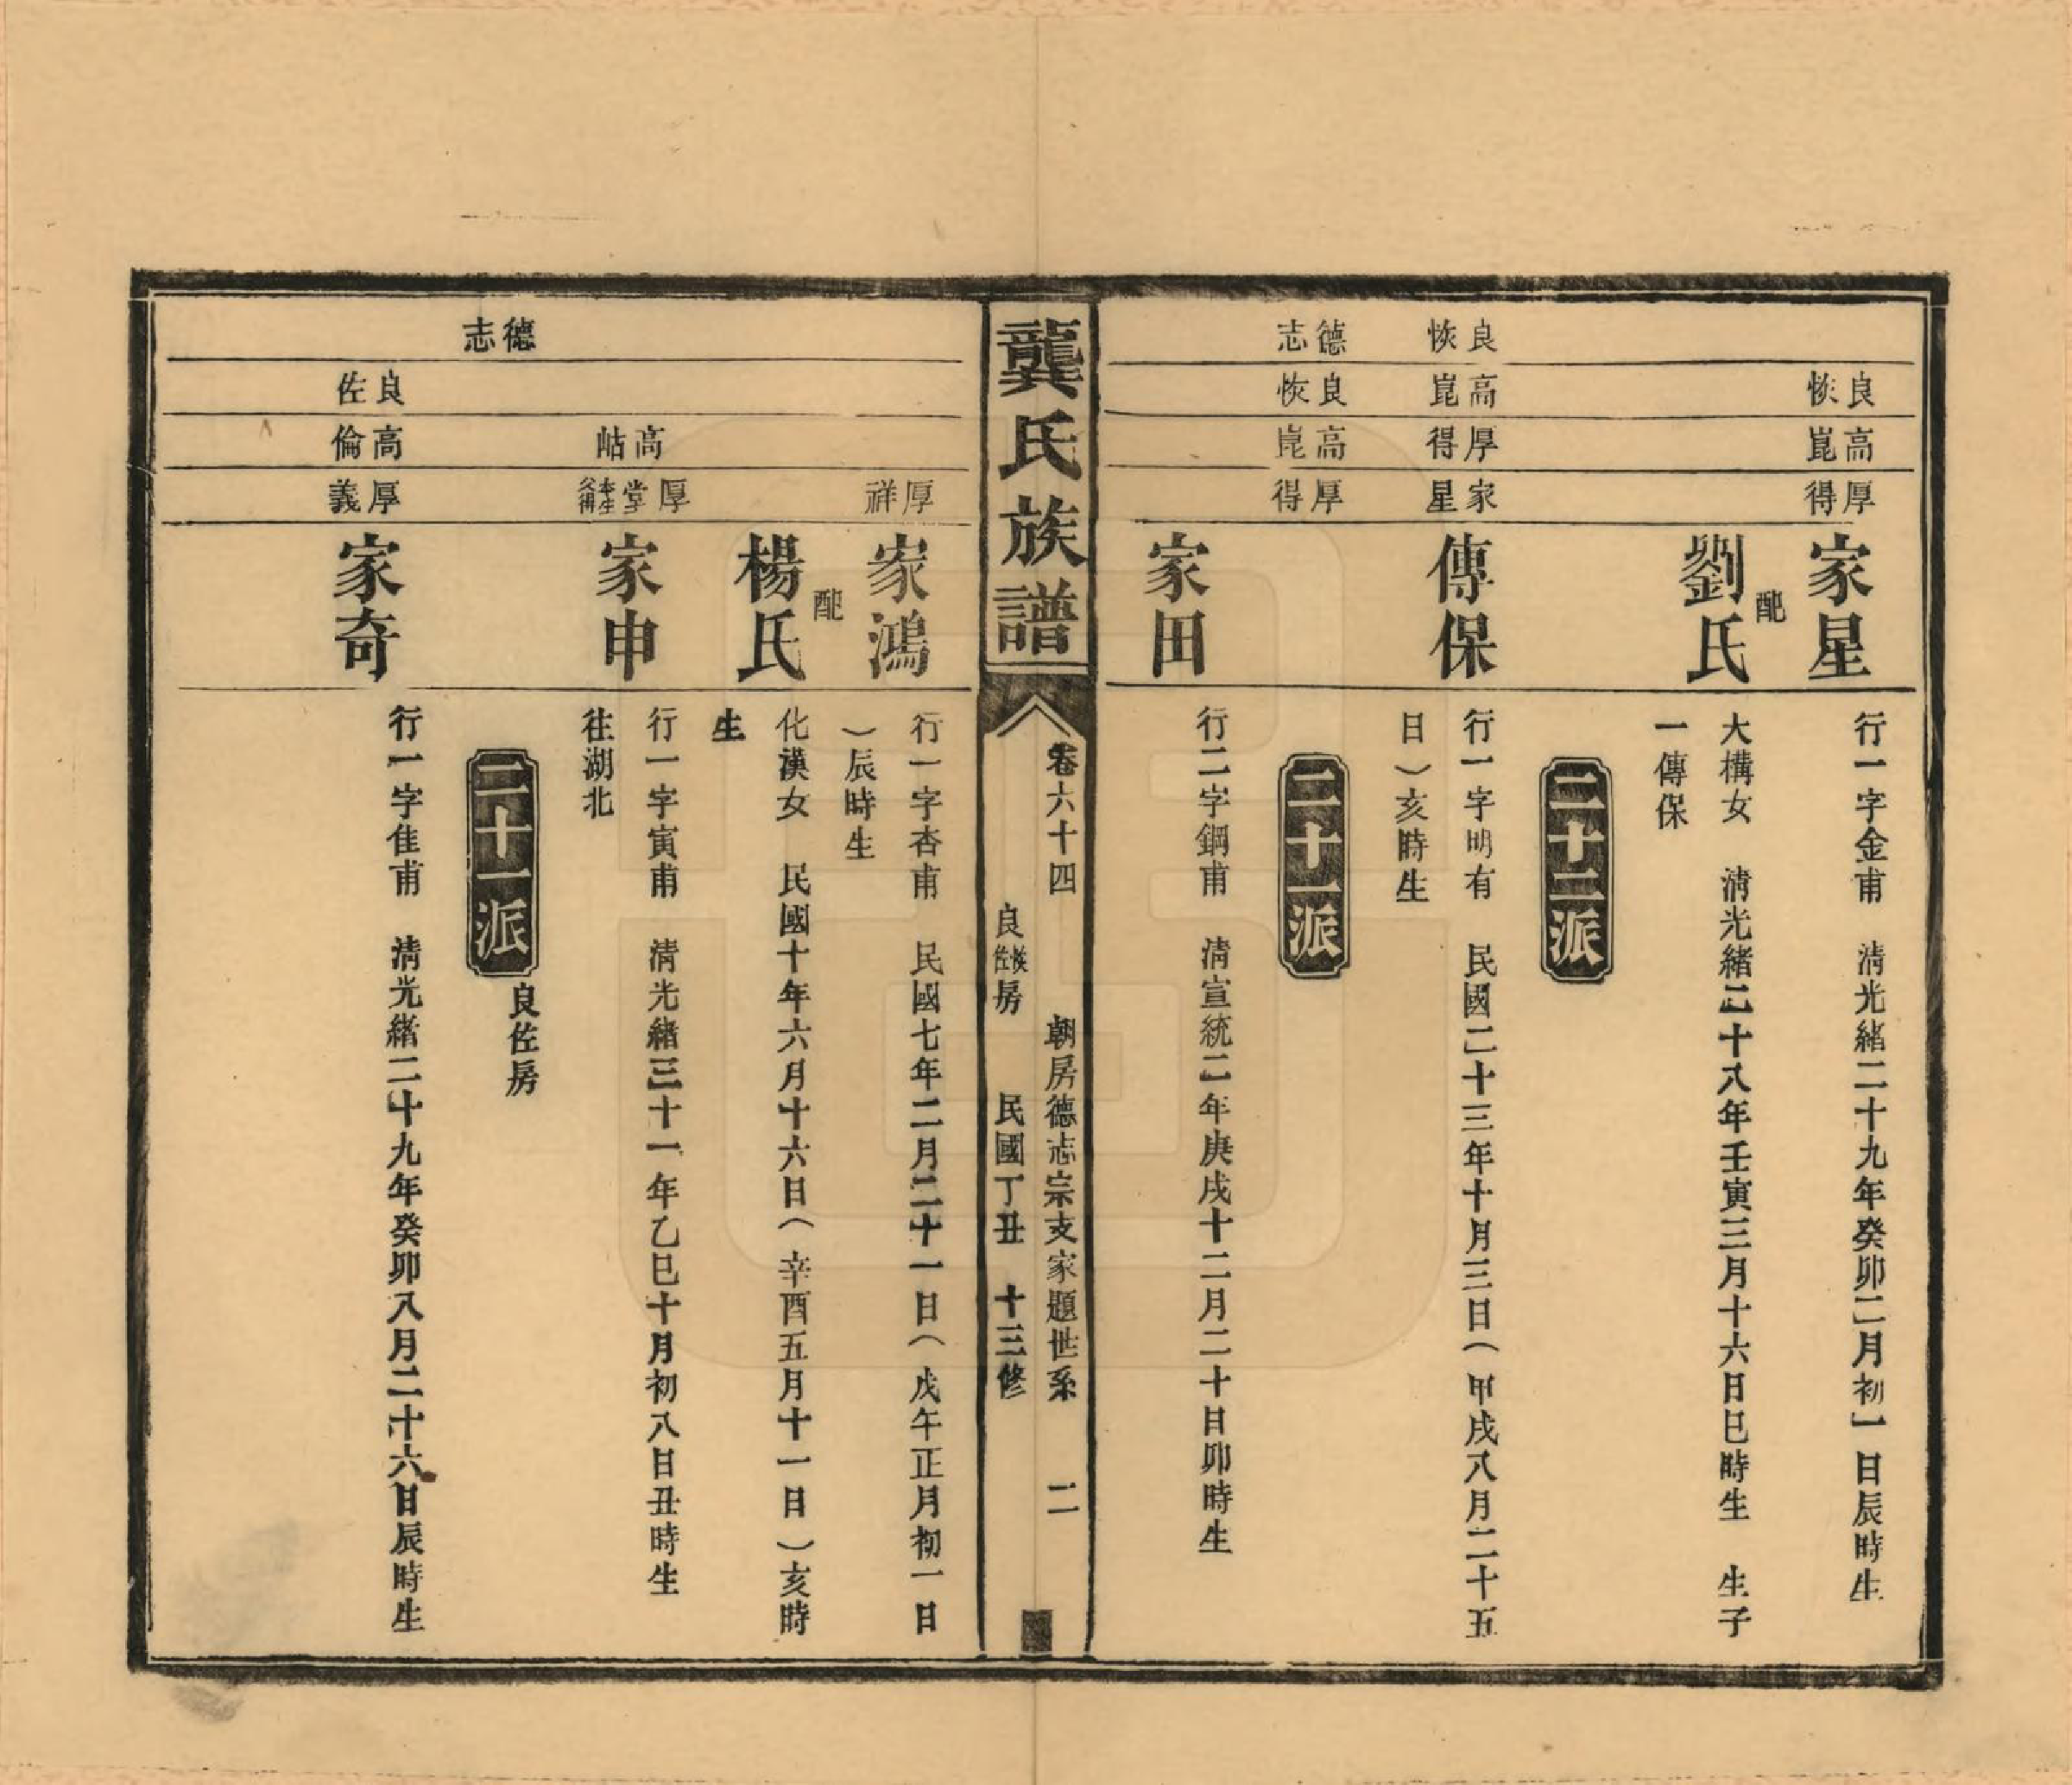 良恢
高崑
厚得
家星
行一字金甫　淸光緒二十九年癸卯二月初一日辰時生
配
劉氏
大構女　淸光緒二十八年壬寅三月十六日巳時生　生子
一傳保
二十二派
良恢
高崑
厚得
家星
傳保
行一字明有　民國二十三年十月三日（甲戌八月二十五
日）亥時生
二十一派
德志
良恢
高崑
厚得
家田
行二字鋼甫　淸宣統二年庚戌十二月二十日卯時生
龔氏族譜
卷六十四　朝房德志宗支家題世系　二
良恢佐房　民國丁丑　十三修
厚祥
家鴻
行一字杏甫　民國七年二月二十一日（戊午正月初一日
）辰時生
配
楊氏
化漢女　民國十年六月十六日（辛酉五月十一日）亥時
生
高岵
厚堂本生父得
家申
行一字寅甫　淸光緒三十一年乙巳十月初八日丑時生
往湖北
二十一派
良佐房
德志
良佐
高倫
厚義
家奇
行一字佳甫　淸光緒二十九年癸卯八月二十六日辰時生